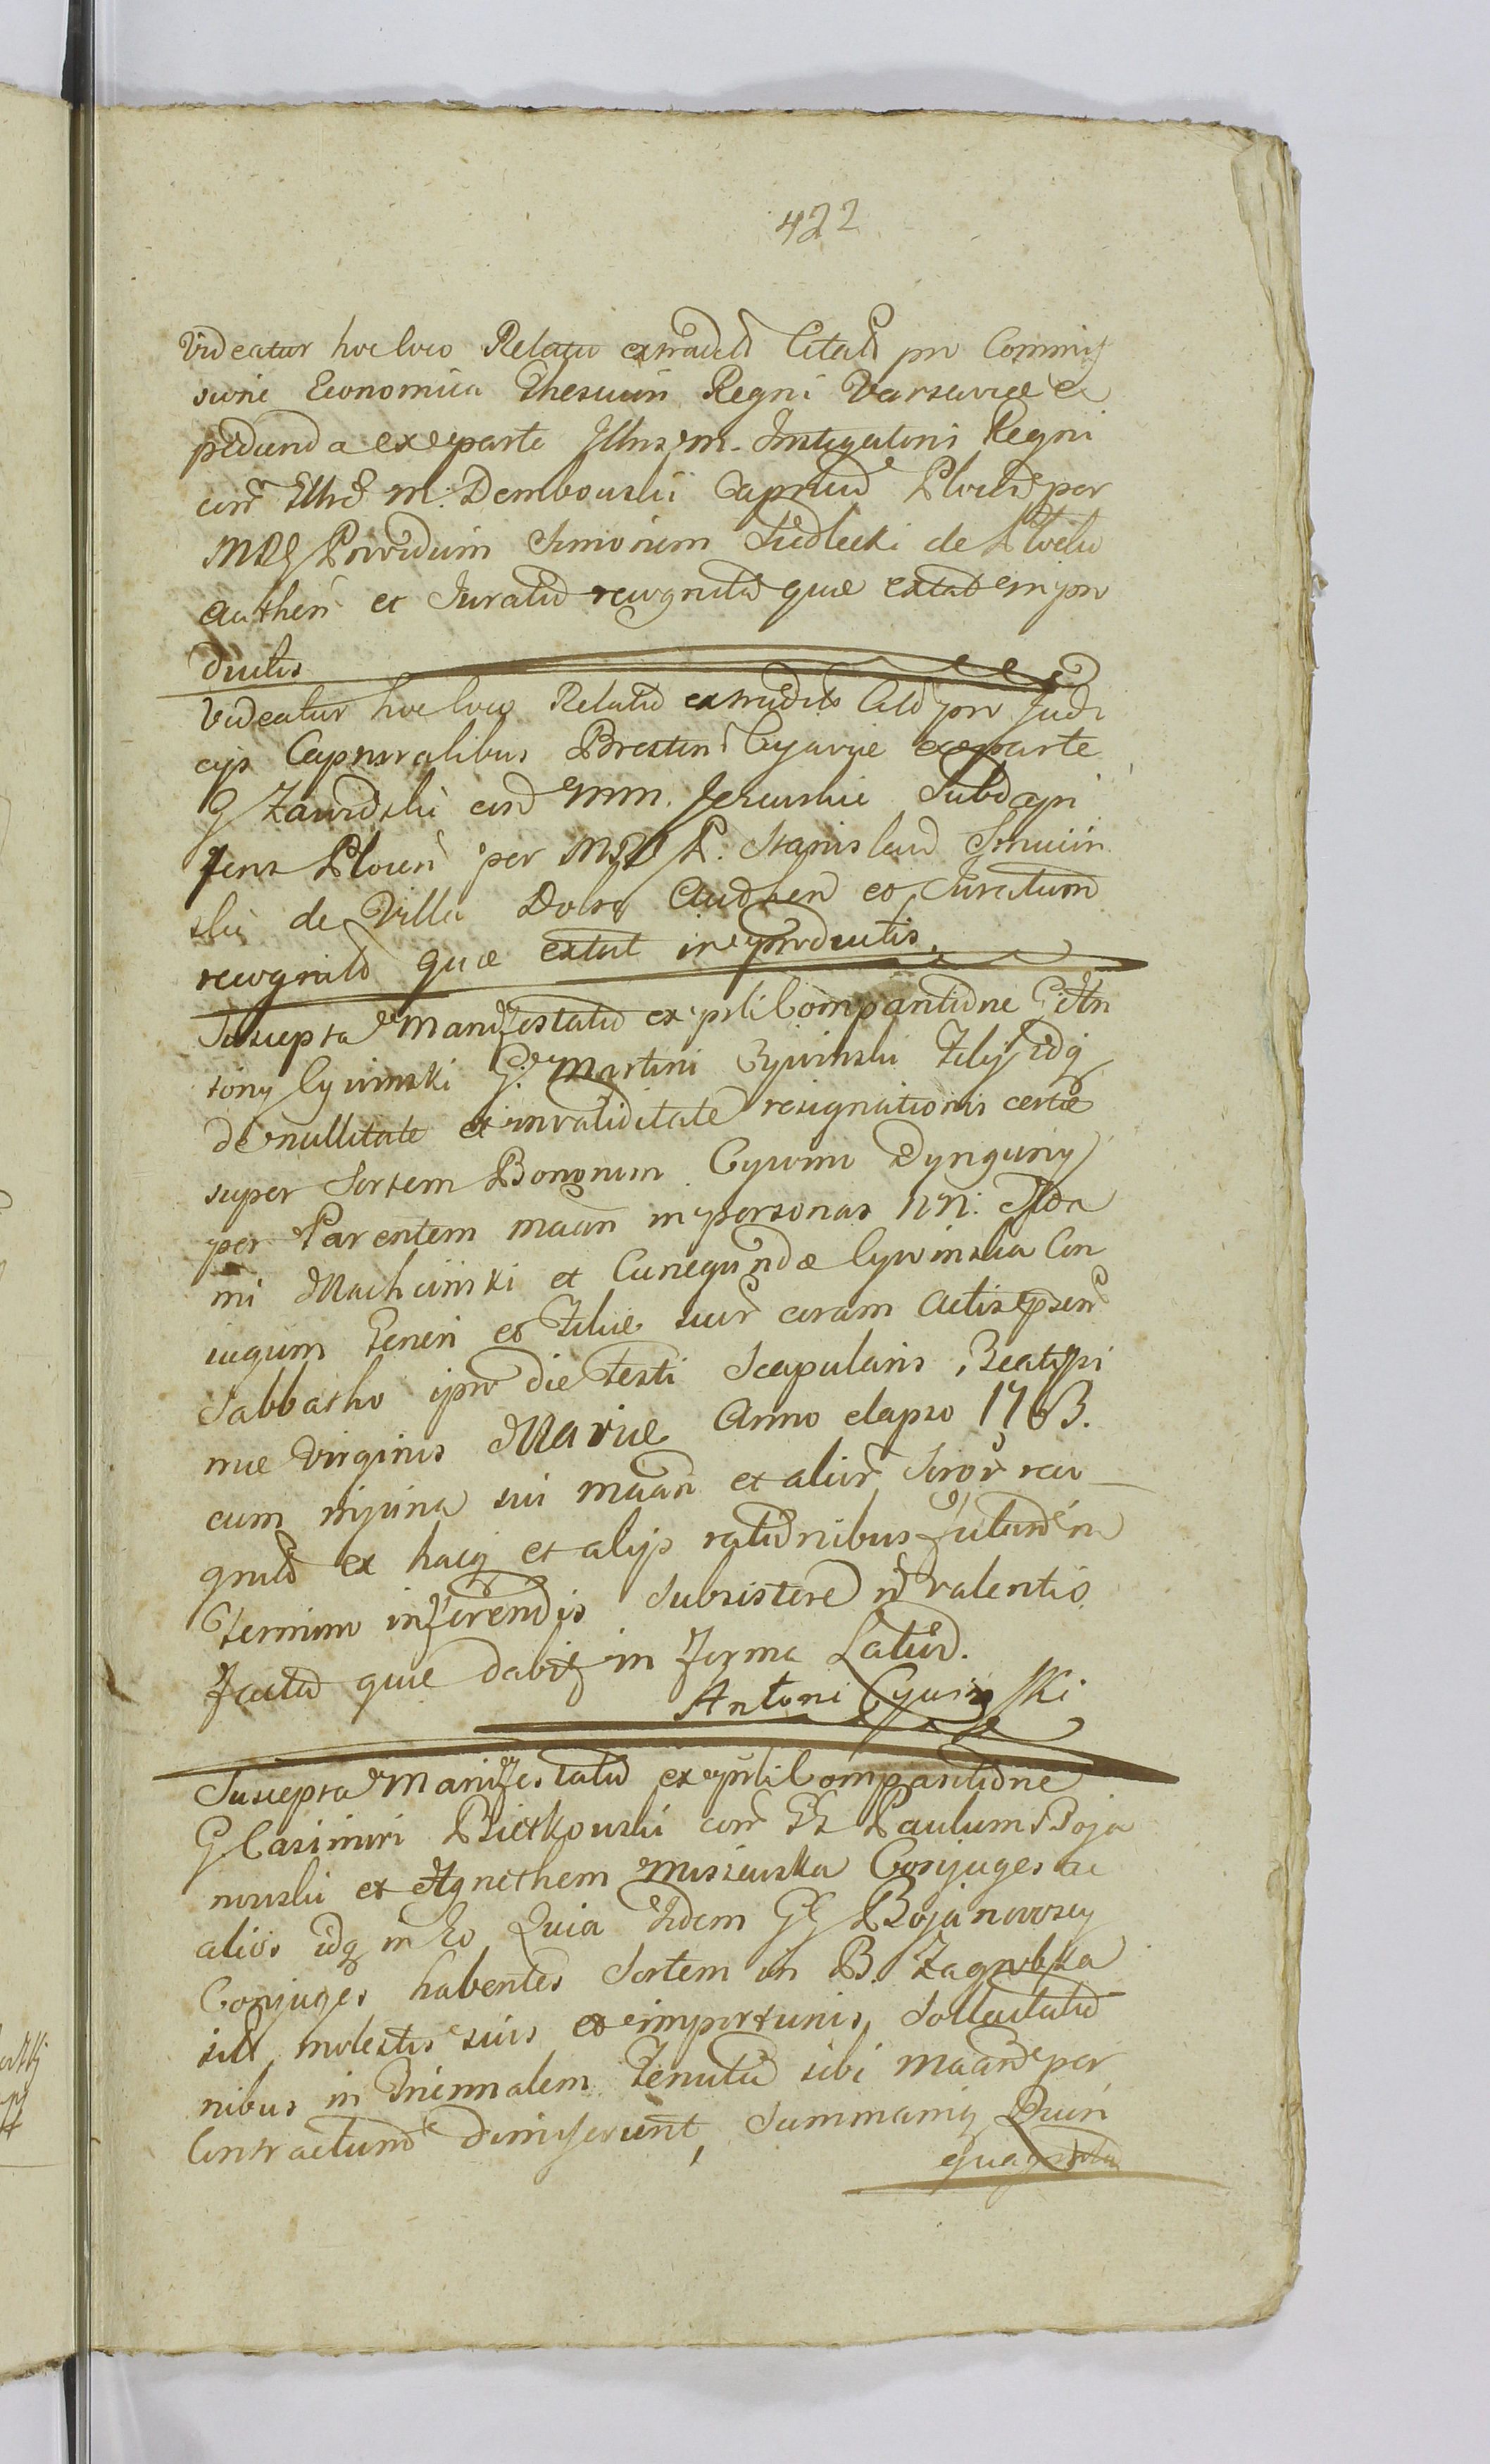 422
Videatur hoc loco Relatio extradit Citatis pro Commis
sione Economica Thesauri Regni Varsaviae ex
pedienda ex parte Illris M. Instigatoris Regni
con Illrem M. Dembowski Capneum Plocen per
MRG Providum Simonem Siedlecki de Plocko
authen et Juratio recognita quae extat in pro
ductis
Videatur hoc loco Relatio extradits Citt pro Judi
cijs Capturalibus Bresten Cujaviae ex parte
G Zawidzki con MM. Jezewskie Subdapi
feros Plocen per MRG P. Stanislaum
ski de Villa authen et Juratum
recognito quae extat in productis
Suscepta Manifestatio ex psli Compantione G An
tony Cywinski G. Martini Cywinski Filij idq
de nullitate et invaliditate resignationis certae
super Sortem Bonorum Cywinu Dynguny
per Parentem maan in personas NN. Ada
mi Machcinski et Cunegundae Cywinska Con
iugum Generi et Filiae suar coram Actis psen
Sabbatho ipso die Festi Scapularis Beatissi
mae Virginis Mariae Anno elapso 1763.
cum injuria sui maan et alior Soror reco
gnito ex hacq et alijs rationibus futuro in
Termino inferendis Subsistere n valentis
facta quae dabit in forma Latiori.
Antoni Cywinski
Suscepta Manifestatio ex psli Compantione
G Casimiri Pietkowski con GG Paulum Boja
nowski et Agnethem Miszewska Conjuges ac
alios idq in Eo Quia Iidem GG Bojanowscy
Conjuges habentes Sortem in B. Zagrobka
sitt molestis suis et importunis Sollicitatio
nibus in Triennalem Tenutam sibi maan per
Contractum dimiserunt, Summamq Quin
quaginta